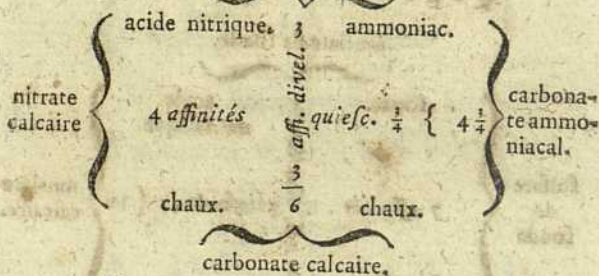 acide nitrique. 3 ammoniac.
nitrate calcaire
4 affinités
affi. divel.
quiesc. 3/4 { 4 3/4
carbona-
te ammo-
niacal.
3
chaux. 6 chaux.
carbonate calcaire.